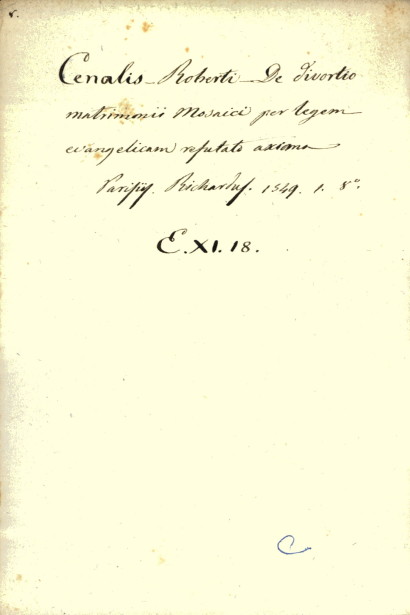 Cenalis Roberti De divortio
matrimonii Mosaici per legem
evangelicam refutato axioma
Parisijs. Richardus. 1549. 1. 8°.
E. XI. 18.
C